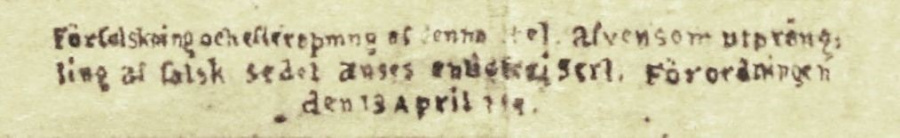 Förfalskning och efterapning af denna äfvensom utpräng;
ling af falsk sedel anses Förordningen
den 13 April